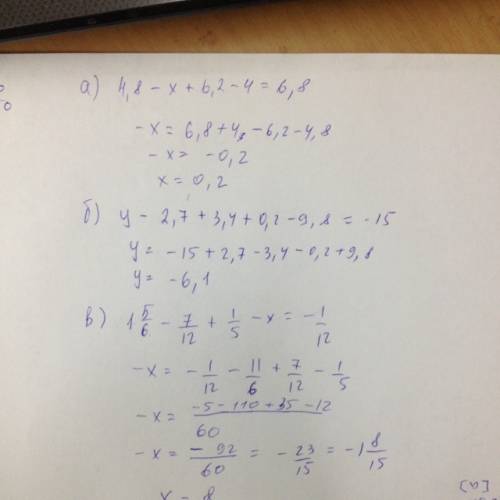 а) 4,8 − x + 6,2 − 4 = 6,8
−x = 6,8 + 4 − 6,2 − 4,8
−x = −0,2
x = 0,2
б) y − 2,7 + 3,4 + 0,2 − 9,8 = −15
y = −15 + 2,7 − 3,4 − 0,2 + 9,8
y = −6,1
в) 1 5/6 − 7/12 + 1/5 − x = −1/12
−x = −1/12 − 11/6 + 7/12 − 1/5
−x = (−5 − 110 + 35 − 12)/60
−x = −92/60 = −23/15 = −1 8/15